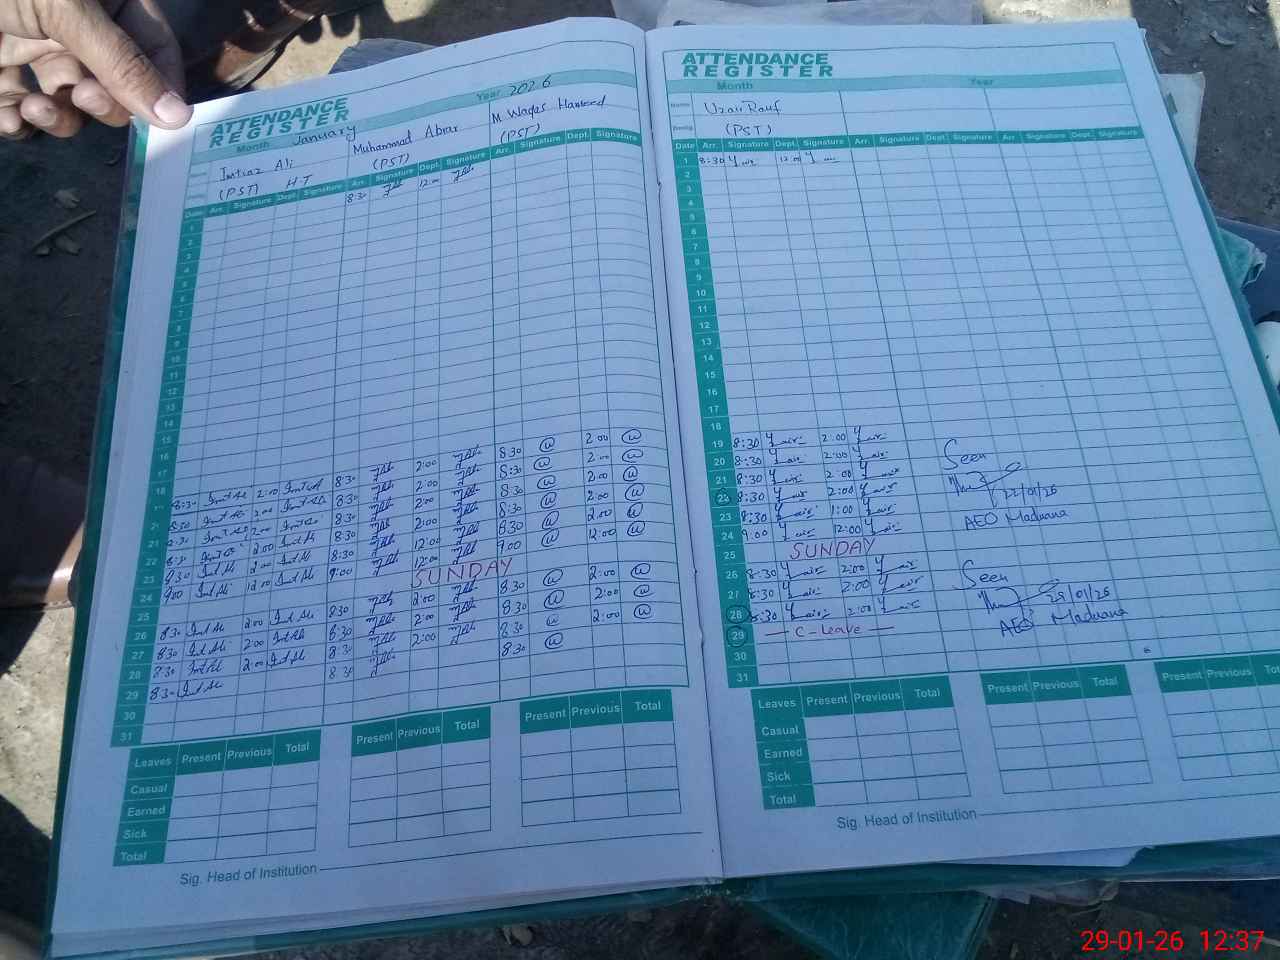 ATTENDANCE
REGISTER
Month January Year 2026
Imtiaz Ali Muhammad Abrar M Waqas Hameed
(PST) H.T (PST) (PST)
Date Arr. Signature Dept. Signature Arr. Signature Dept. Signature Arr. Signature Dept. Signature
1 8:30 12:00
2
3
4
5
6
7
8
9
10
11
12
13
14
15
16
17
18
8:30 2:00 8:30 2:00 8:30 2:00
8:30 2:00 8:30 2:00 8:30 2:00
21 8:30 2:00 8:30 2:00 8:30 2:00
22 8:30 2:00 8:30 2:00 8:30 2:00
23 8:30 2:00 8:30 12:00 8:30 2:00
24 9:00 12:00 9:00 12:00 9:00 12:00
25 SUNDAY
26 8:30 2:00 8:30 2:00 8:30 2:00
27 8:30 2:00 8:30 2:00 8:30 2:00
28 8:30 2:00 8:30 2:00 8:30 2:00
29 8:30 8:30 8:30
30
31
Leaves Present Previous Total Present Previous Total Present Previous Total
Casual
Earned
Sick
Total
Sig. Head of Institution
ATTENDANCE
REGISTER
Month Year
Name Uzair Rauf
Desig. (PST)
Date Arr. Signature Dept. Signature Arr. Signature Dept. Signature Arr. Signature Dept. Signature
1 8:30 12:00
2
3
4
5
6
7
8
9
10
11
12
13
14
15
16
17
18
19 8:30 2:00
20 8:30 2:00 Seen
21 8:30 2:00
22 8:30 2:00 22/01/26
23 8:30 1:00 AEO Maduana
24 9:00 12:00
25 SUNDAY
26 8:30 2:00 Seen
27 8:30 2:00 28/01/26
28 8:30 2:00 AEO Maduana
29 C-Leave
30
31
Leaves Present Previous Total Present Previous Total Present Previous
Casual
Earned
Sick
Total
Sig. Head of Institution
29-01-26 12:37